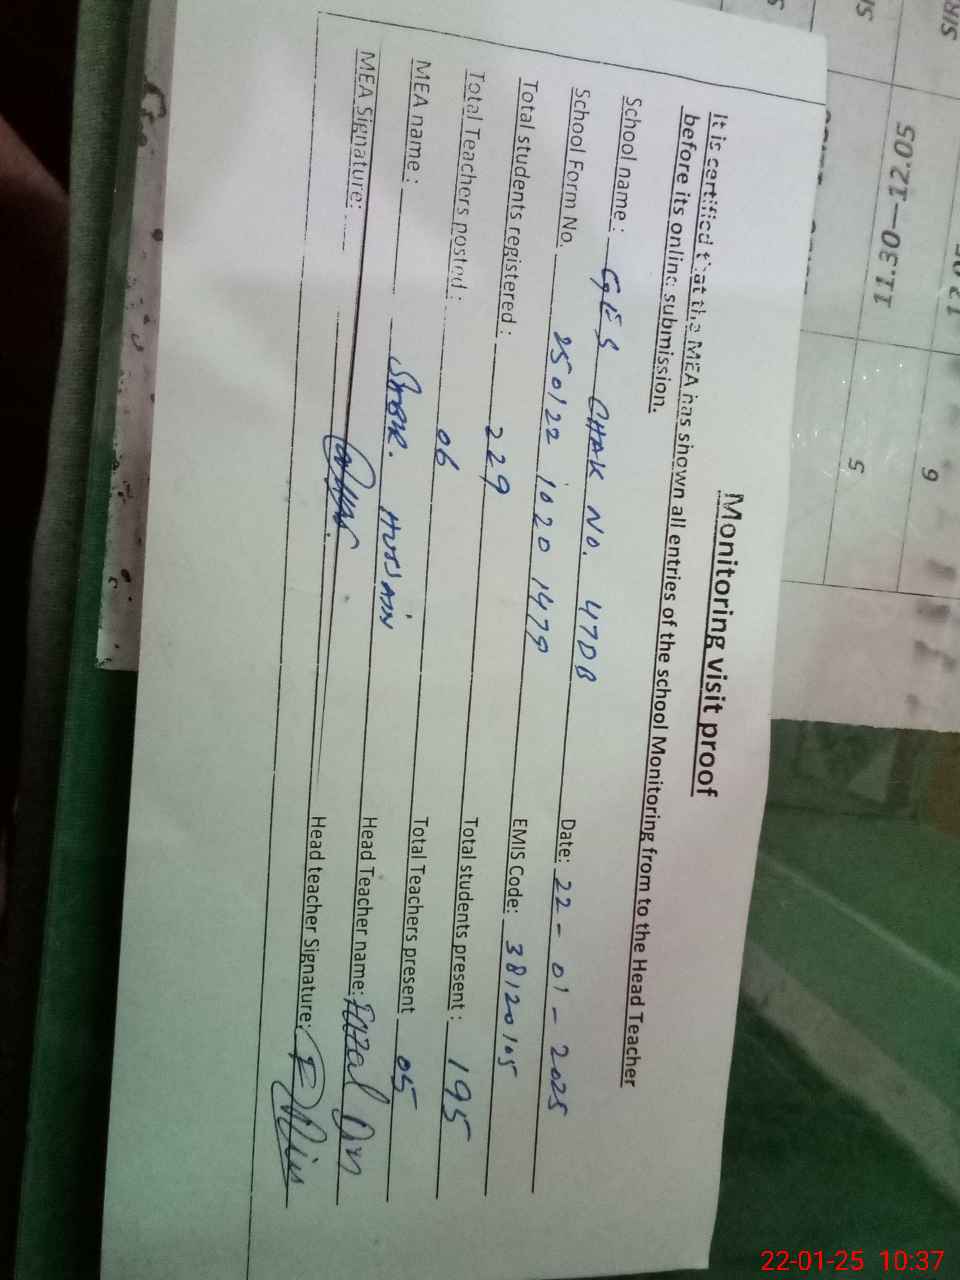 Monitoring visit proof
It is certified that the MEA has shown all entries of the school Monitoring from to the Head Teacher
before its online submission.
School name : GES CHAK No. 47DB Date: 22-01-2025
School Form No. 250122 1020 1479 EMIS Code: 38120105
Total students registered : 229 Total students present : 195
Total Teachers posted : 06 Total Teachers present 05
MEA name : HUSSAIN Head Teacher name: Fazal Din
MEA Signature: Head teacher Signature:
11:30-12:05
9
5
22-01-25 10:37